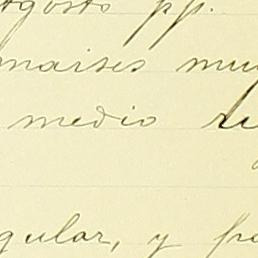 Agosto pp.
maises muy
medio
gular, y